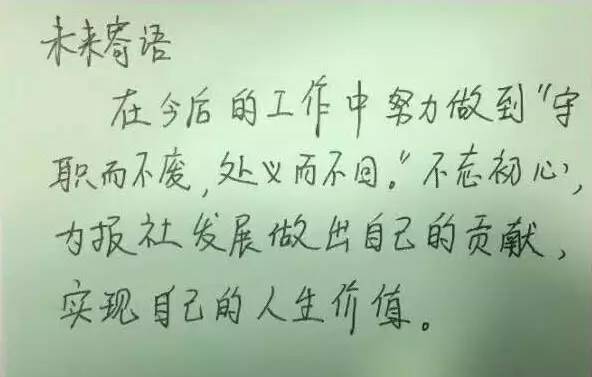 未来寄语
在今后的工作中努力做到“守
职而不废,处义而不回。”不忘初心,
为报社发展做出自己的贡献,
实现自己的人生价值。